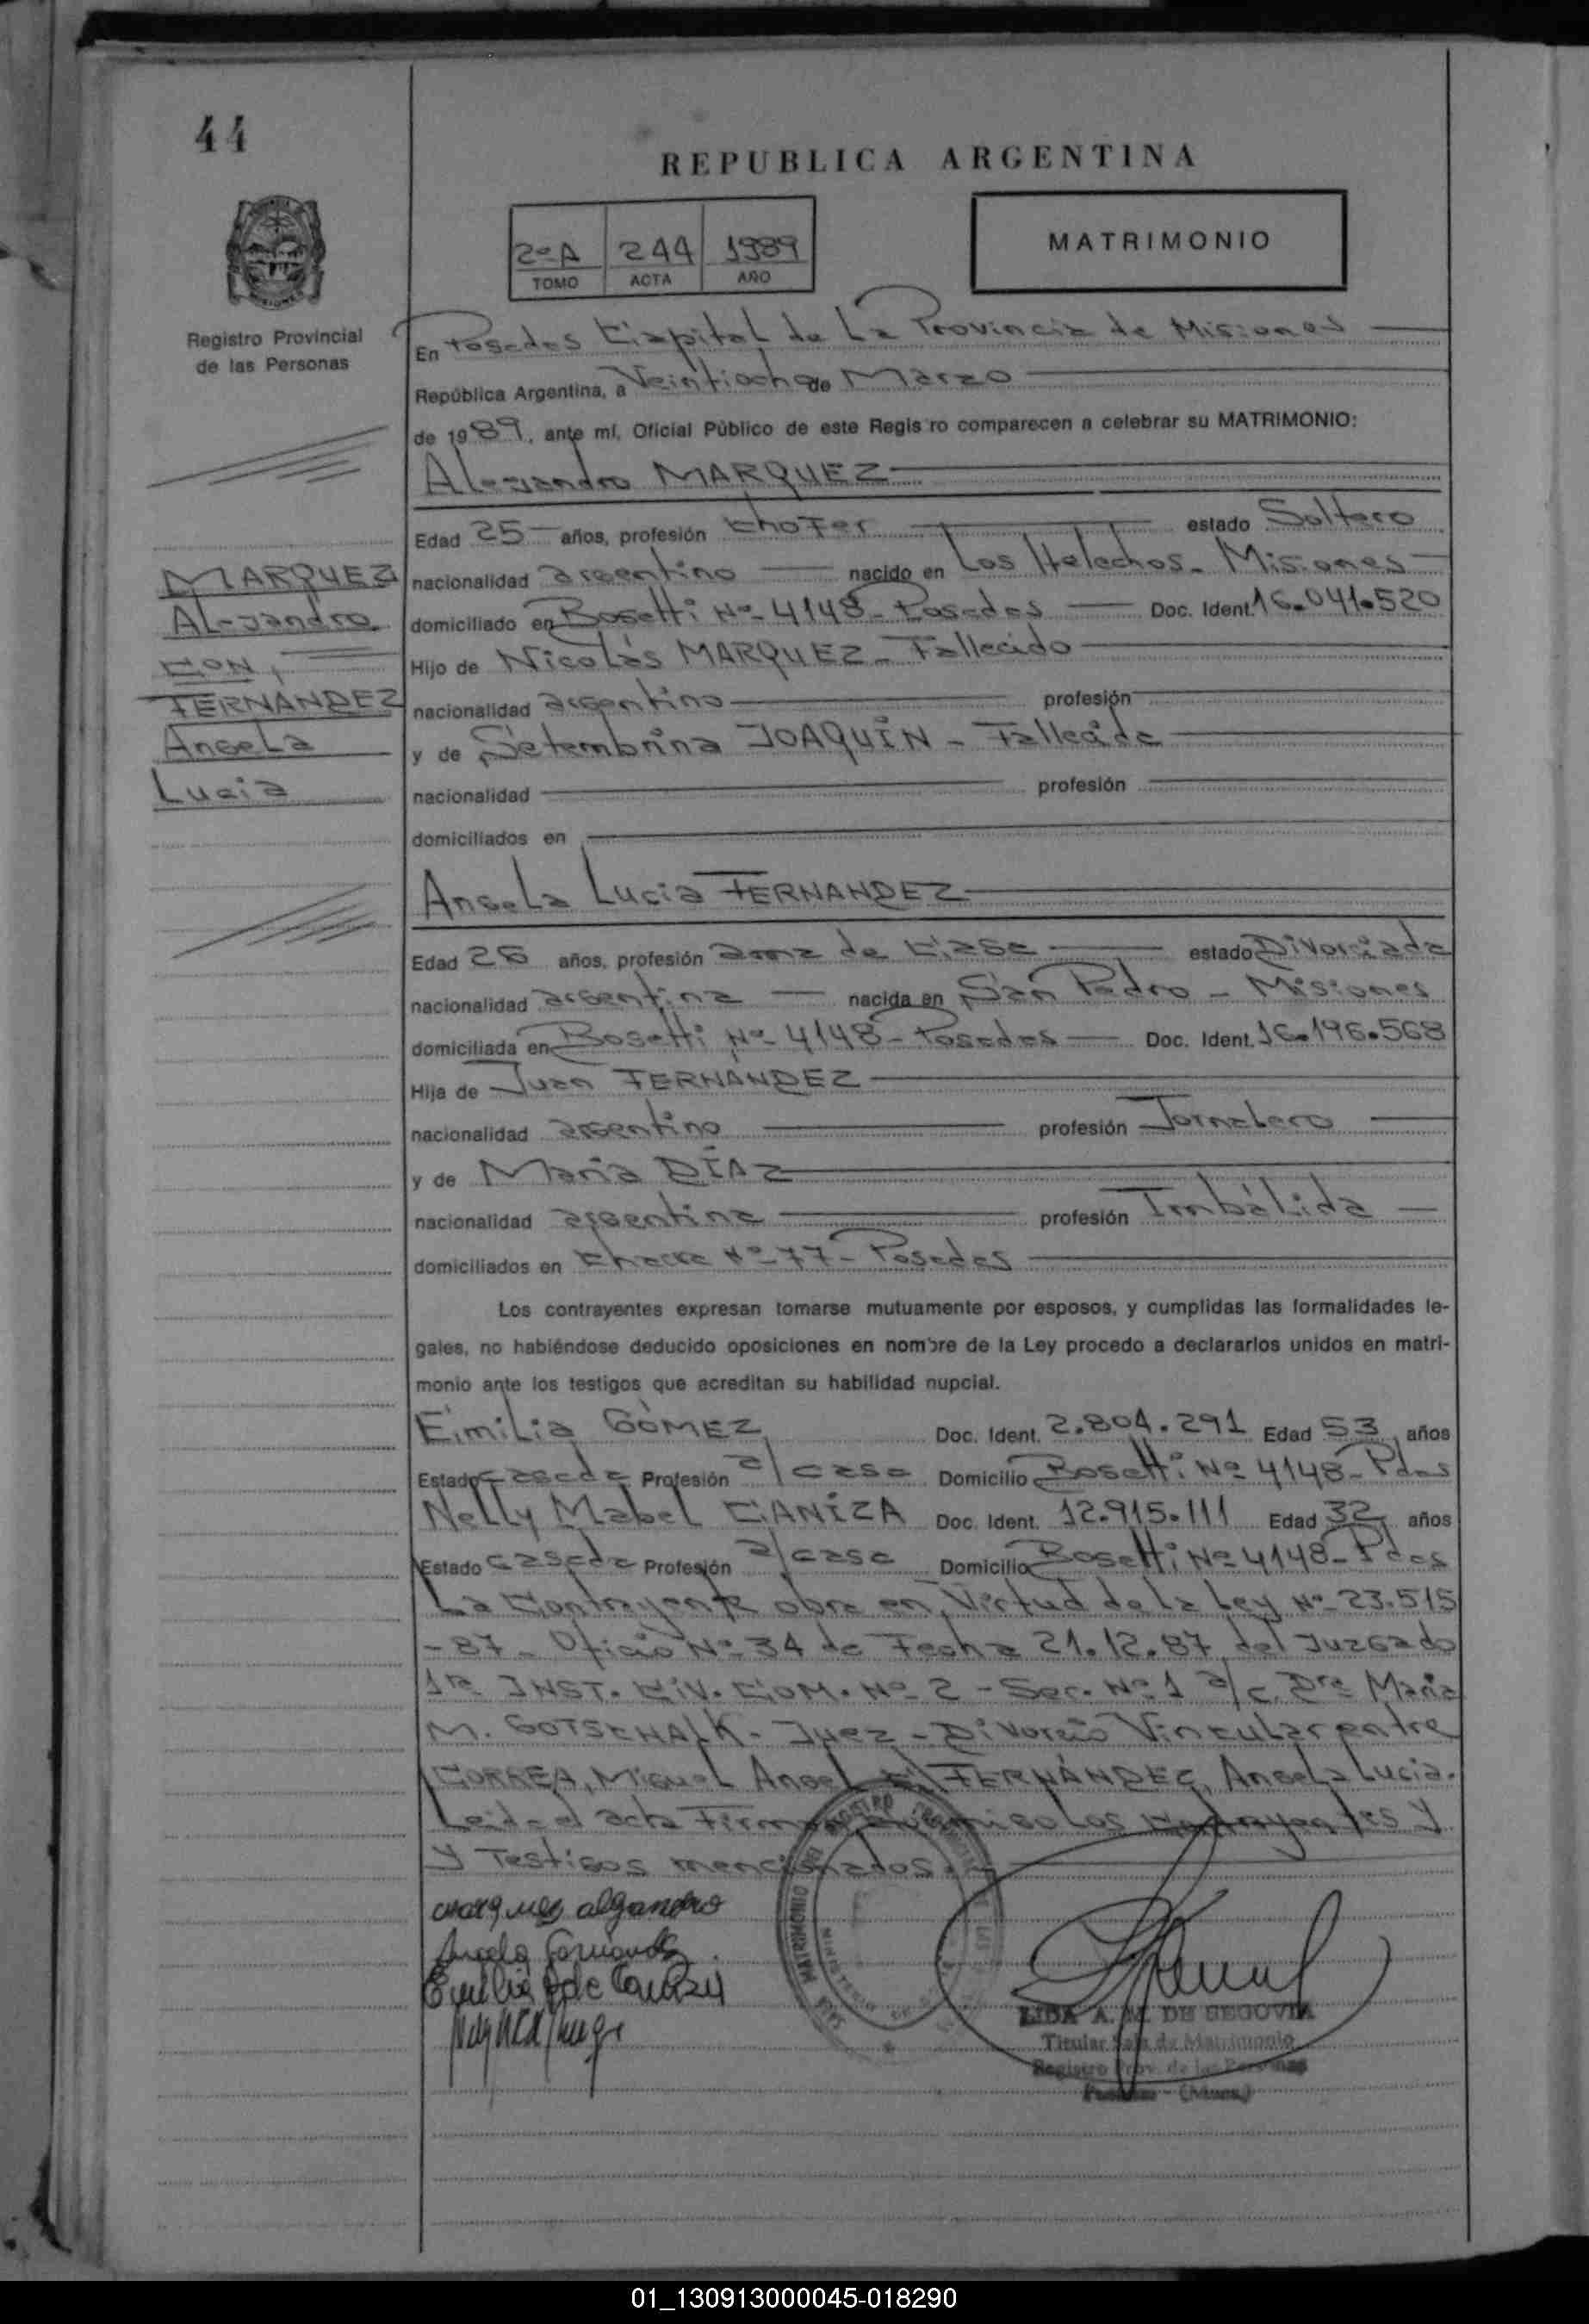 44
REPUBLICA ARGENTINA
2º A 244 1989
TOMO ACTA AÑO
MATRIMONIO
Registro Provincial
de las Personas
En Posadas Capital de La Provincia de Misiones
República Argentina, a Veintiocho de Marzo
de 1989, ante mí, Oficial Público de este Regis ro comparecen a celebrar su MATRIMONIO:
Alejandro MARQUEZ
Edad 25 años, profesión chofer estado Soltero
MARQUEZ
Alejandro
CON
FERNANDEZ
Angela
Lucia
nacionalidad argentino nacido en Los Helechos - Misiones
domiciliado en Bosetti Nº 4148 - Posadas Doc. Ident. 16.041.520
Hijo de Nicolás MARQUEZ - Fallecido
nacionalidad argentino profesión
y de Setembrina JOAQUIN - Fallecida
nacionalidad profesión
domiciliados en
Angela Lucia FERNANDEZ
Edad 26 años, profesión ama de casa estado Divorciada
nacionalidad argentina nacida en San Pedro - Misiones
domiciliada en Bosetti Nº 4148 - Posadas Doc. Ident. 16.196.568
Hija de Juan FERNÁNDEZ
nacionalidad argentino profesión Jornalero
y de Maria DÍAZ
nacionalidad argentina profesión Imbálida
domiciliados en chacra Nº 77 - Posadas
Los contrayentes expresan tomarse mutuamente por esposos, y cumplidas las formalidades le-
gales, no habiéndose deducido oposiciones en nombre de la Ley procedo a declararlos unidos en matri-
monio ante los testigos que acreditan su habilidad nupcial.
Emilia GÓMEZ Doc. Ident. 2.804.291 Edad 53 años
Estado casada Profesión a/casa Domicilio Bosetti Nº 4148 - Pdas
Nelly Mabel CANIZA Doc. Ident. 12.915.111 Edad 32 años
Estado casada Profesión a/casa Domicilio Bosetti Nº 4148 - Pdas
La Contrayente obra en Virtud de la Ley Nº 23.515
-87- Oficio Nº 34 de Fecha 21.12.87 del Juzgado
1ra INST. CIV. COM. Nº 2 - Sec. Nº 1 a/c Dra Maria
M. GOTSCHALK - Juez - Divorcio Vincular entre
CORREA, Miguel Angel c/ FERNÁNDEZ, Angela Lucia.
Leida el acta Firman conmigo los contrayentes y
y Testigos mencionados.
Marques alejandro
Angela Fernandez
LIDA A. M. DE SEGOVIA
Titular Sala de Matrimonio
Registro Prov. de las Personas
Posadas - (Mnes.)
01_130913000045-018290